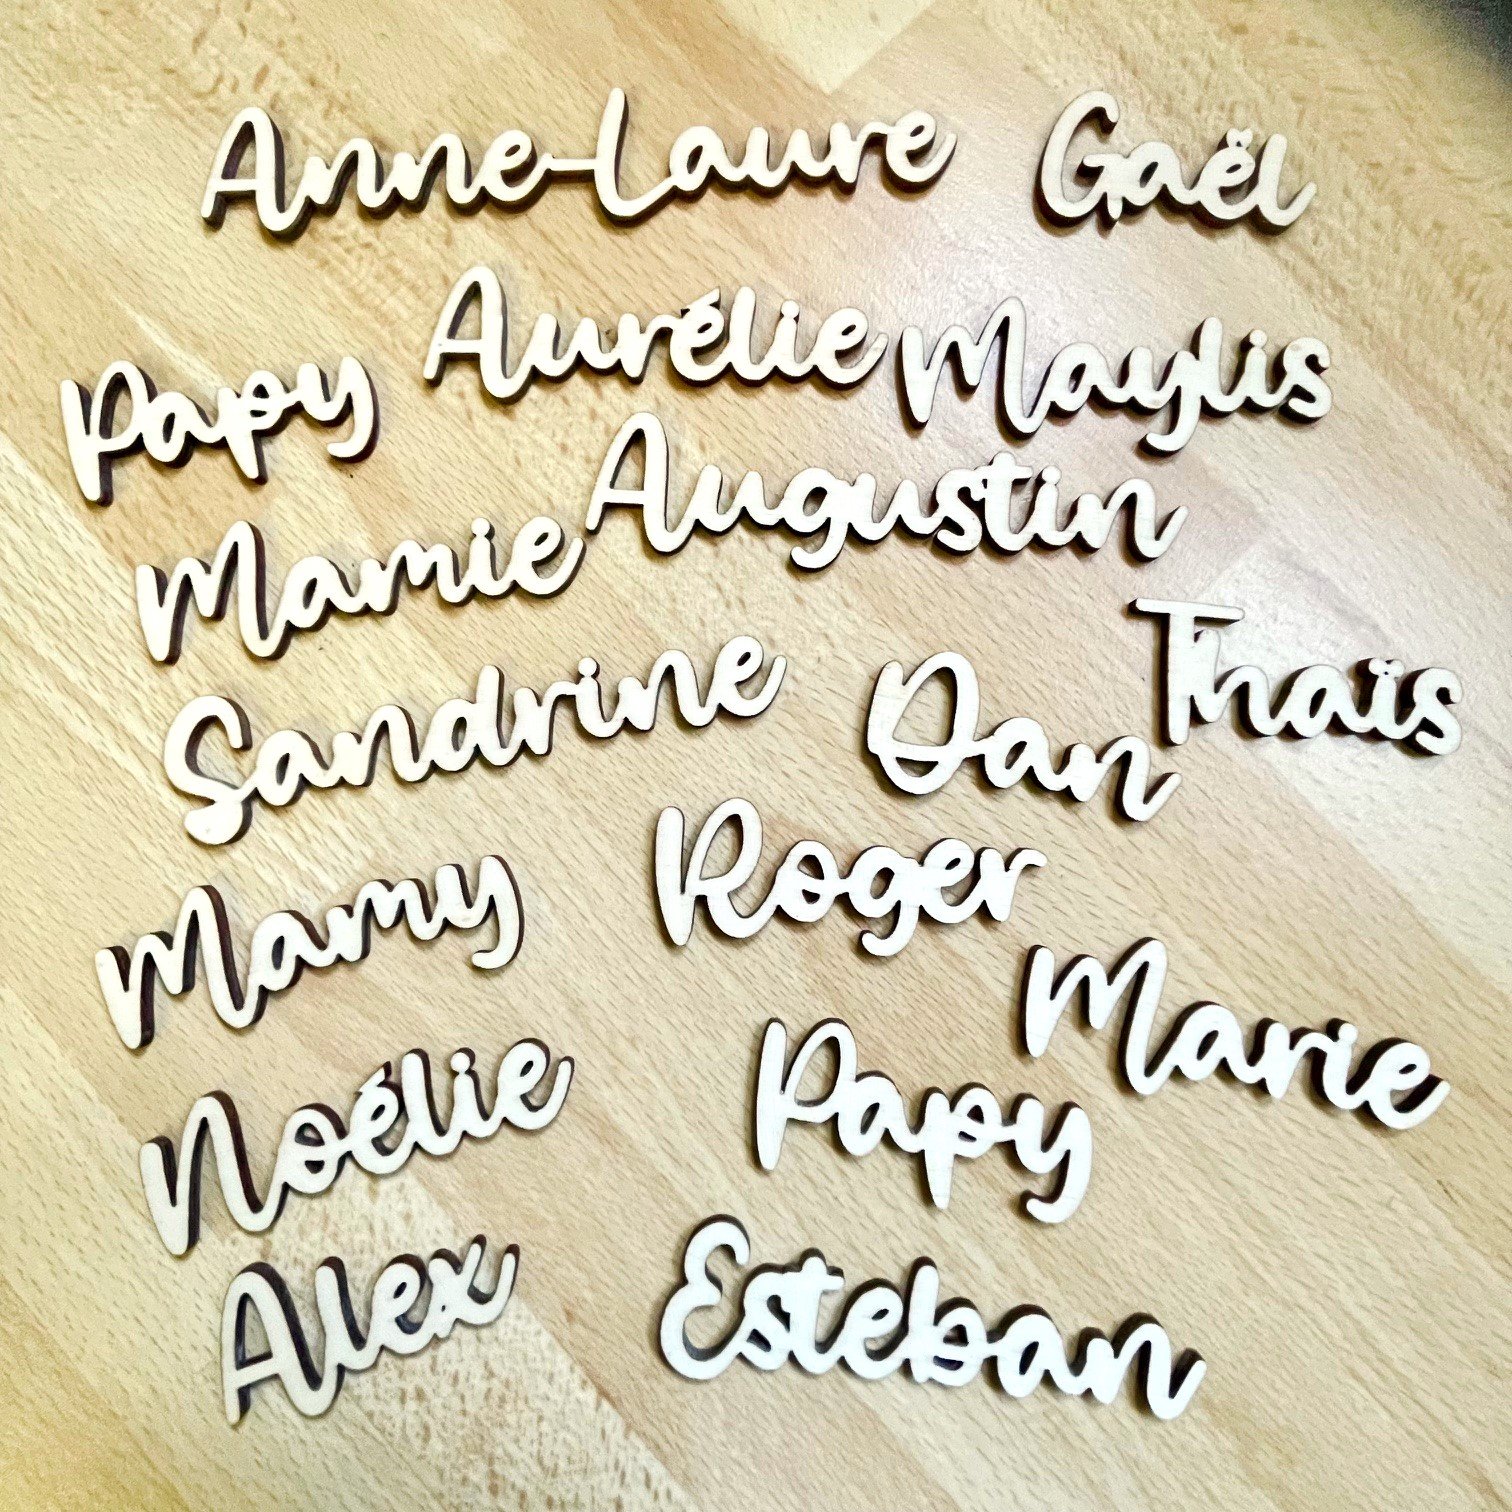 Anne-Laure
Gaël
Aurélie
Maylis
Papy
Augustin
Mamie
Thaïs
Sandrine
Dan
Roger
Mamy
Marie
Noélie
Papy
Alex
Esteban